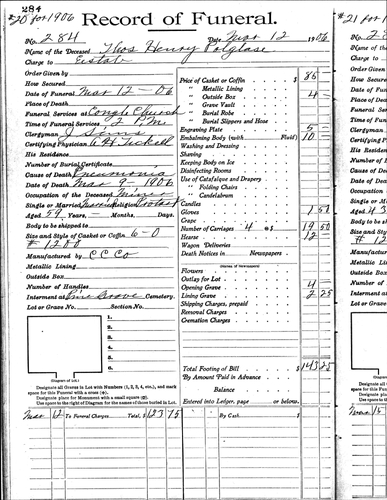 284
#20 for 1906
Record of Funeral.
No. 284
Date Mar 12 1906
Name of the Deceased Thos Henry Polglase
Charge to Estate
Order Given by
How Secured
Date of Funeral Mar 12 - 06
Place of Death
Funeral Services at Congl Church
Time of Funeral Services 2 P.M.
Clergyman J Sims
Certifying Physician
His Residence
Number of Burial Certificate
Cause of Death Pneumonia
Date of Death Mar 9 - 1906
Occupation of the Deceased Mining
Single or Married Married Religion Protest
Aged 59 Years - Months Days
Body to be shipped to
Size and Style of Casket or Coffin 6-0
# 1200
Manufactured by C C Co
Metallic Lining
Outside Box
Number of Handles
Interment at Pine Grove Cemetery.
Lot or Grave No. Section No.
1.
2.
3.
4.
5.
6.
(Diagram of Lot.)
Designate all Graves in Lot with Numbers (1, 2, 3, 4, etc.), and mark
space for this Funeral with a cross
Designate place for Monument with a small square
Use space to the right of Diagram for names of those buried in Lot.
Price of Casket or Coffin $ 85
" Metallic Lining
" Outside Box 4 -
" Grave Vault
" Burial Robe
" Burial Slippers and Hose
Engraving Plate 5 -
Embalming Body (with Fluid) 10 -
Washing and Dressing
Shaving
Keeping Body on Ice
Disinfecting Rooms
Use of Catafalque and Drapery
" Folding Chairs
" Candelabrum
Candles
Gloves 1 50
Crape
Number of Carriages 4 @ $ 19 50
Hearse 12 -
Wagon Deliveries
Death Notices in Newspapers
(Names of Newspapers)
Flowers
Outlay for Lot
Opening Grave 4
Lining Grave 2 25
Shipping Charges, prepaid
Removal Charges
Cremation Charges
Total Footing of Bill $ 143 25
By Amount Paid in Advance
Balance
Entered into Ledger, page or below.
Mar 12 To Funeral Charges Total, $ 123 75
By Cash $
#21 for 1